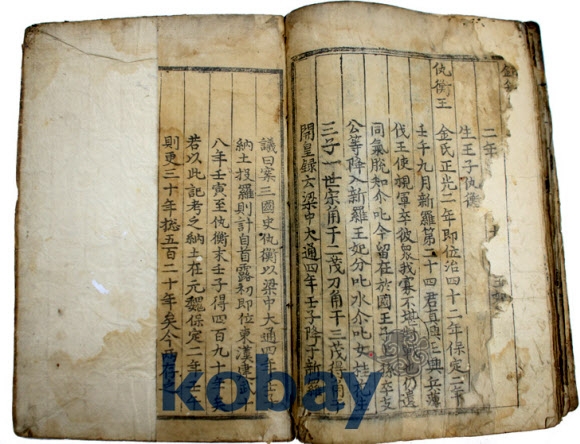 二年
生王子仇衡
仇衡王
金氏正光二年即位治四十二年保定二年
壬午九月新羅第二十四君真興王興兵薄
伐王使親軍卒彼衆我寡不堪也仍遣
同氣脫知尒叱今留在於國王子上孫卒支
公等降入新羅王妃分叱水尒叱女桂
三子一世宗角干二茂刀角干三茂得角
開皇録云梁中大通四年壬子降于新羅
議曰案三國史仇衡以梁中大通四年壬子
納土投羅則計自首露初即位東漢建武十
八年壬寅至仇衡末壬子得四百九十年矣
若以此記考之納土在元魏保定二年
則更三十年総五百二十年矣今兩存
kobay